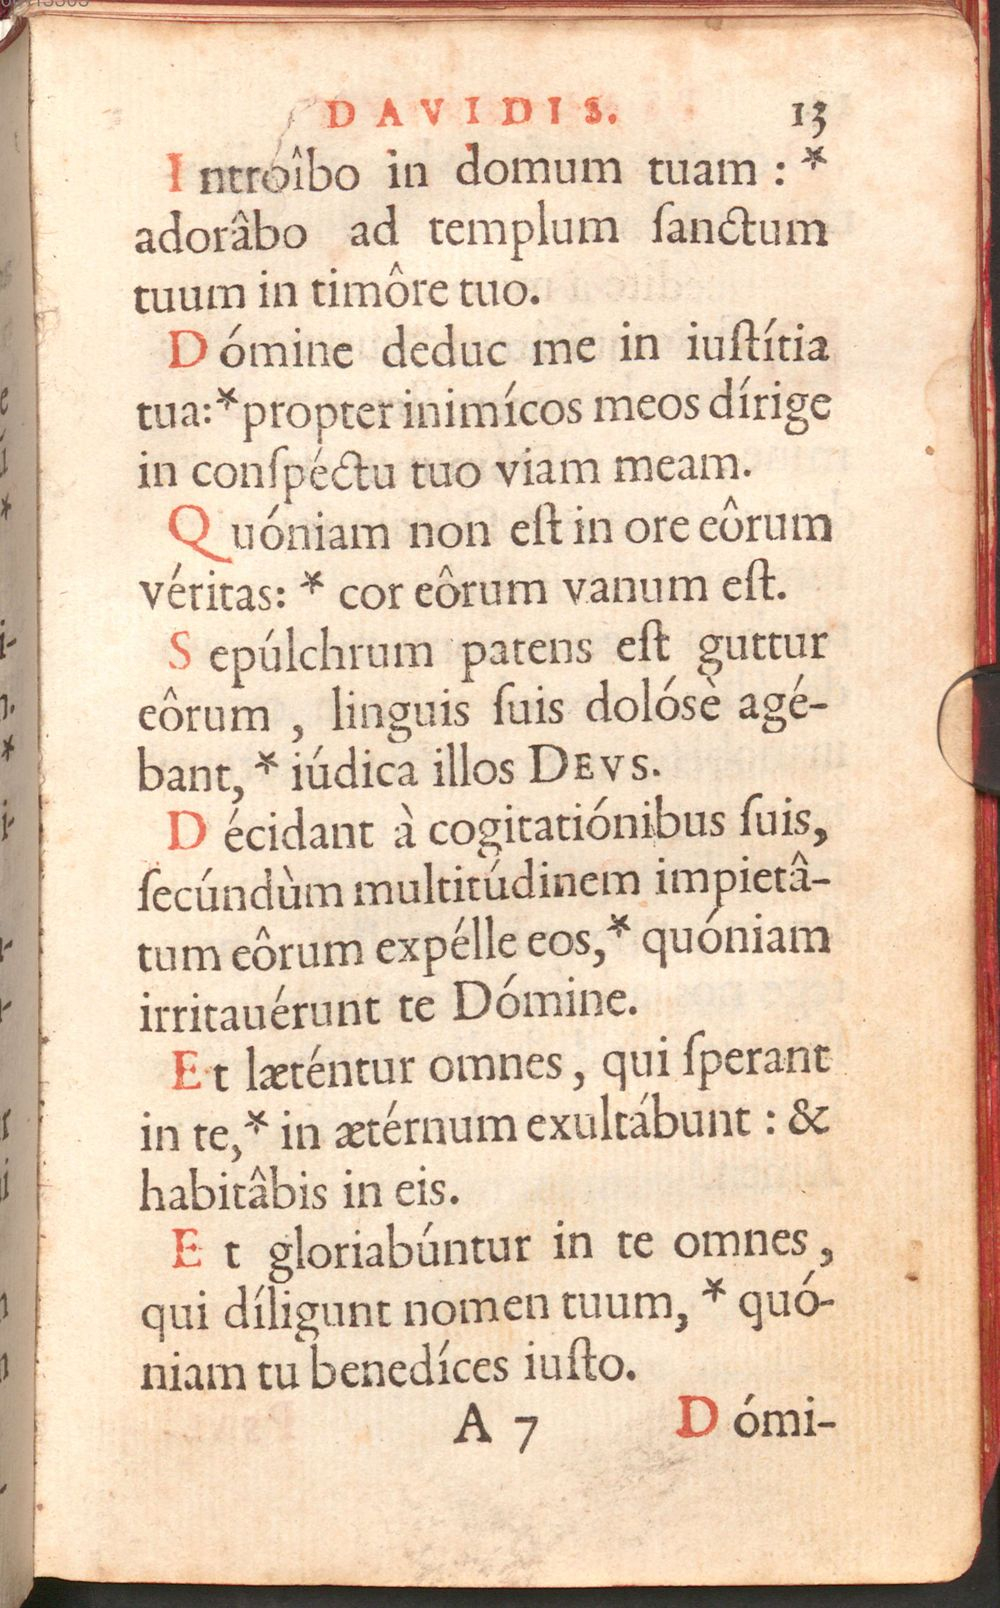 DAVIDIS. 13
Intróîbo in domum tuam : *
adorâbo ad templum ſanctum
tuum in timôre tuo.
Dómine deduc me in iuſtítia
tua:* propter inimícos meos dírige
in conſpéctu tuo viam meam.
Quóniam non eſt in ore eôrum
véritas: * cor eôrum vanum eſt.
Sepúlchrum patens eſt guttur
eôrum , linguis ſuis dolósè agé-
bant, * iúdica illos DEVS.
Décidant à cogitatiónibus ſuis,
ſecúndùm multitúdinem impietâ-
tum eôrum expélle eos,* quóniam
irritauérunt te Dómine.
Et læténtur omnes , qui ſperant
in te,* in ætérnum exultábunt : &
habitâbis in eis.
Et gloriabúntur in te omnes ,
qui díligunt nomen tuum, * quó-
niam tu benedíces iuſto.
A 7 Dómi-